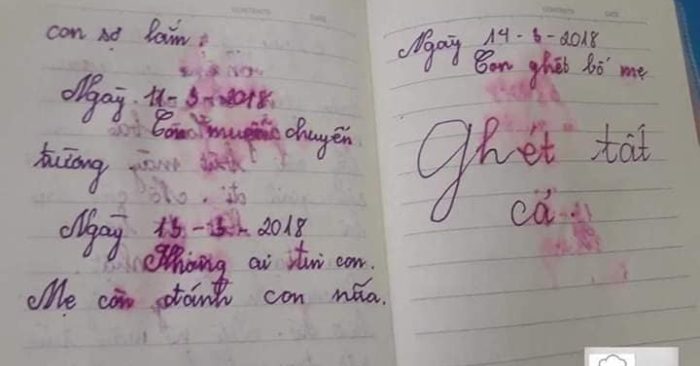 con sợ lắm.
Ngày 11-3-2018
Con muốn chuyển
trường
Ngày 13-3-2018
Không ai tin con.
Mẹ còn đánh con nữa.
CONTENTS DATE
CONTENTS DATE
Ngày 14-3-2018
Con ghét bố mẹ
Ghét tất
cả.